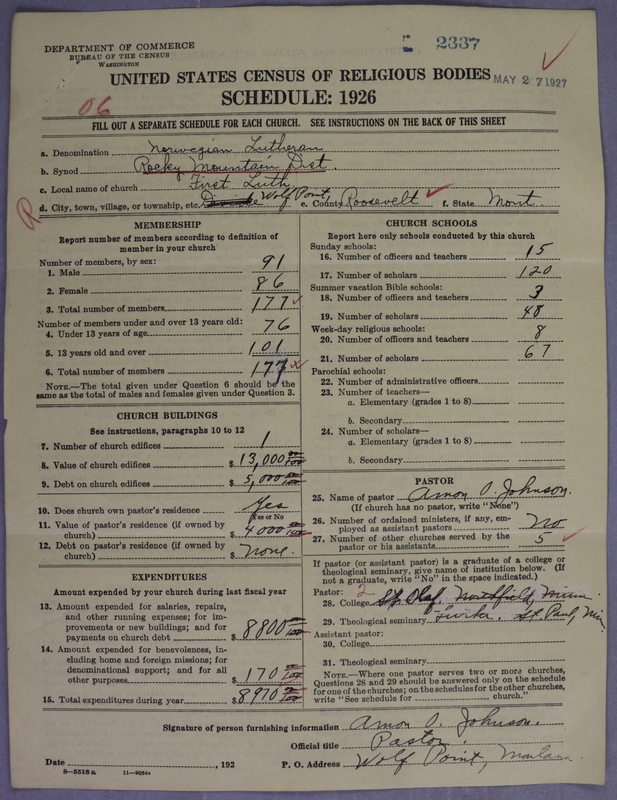 DEPARTMENT OF COMMERCE
BUREAU OF THE CENSUS
WASHINGTON
2337
UNITED STATES CENSUS OF RELIGIOUS BODIES
MAY 27 1927
SCHEDULE: 1926
06
FILL OUT A SEPARATE SCHEDULE FOR EACH CHURCH. SEE INSTRUCTIONS ON THE BACK OF THIS SHEET
a. Denomination Norwegian Lutheran
b. Synod Rocky Mountain Dist.
c. Local name of church First Luth.
R
d. City, town, village, or township, etc. Wolf Point, e. County Roosevelt f. State Mont.
MEMBERSHIP
Report number of members according to definition of
member in your church
Number of members, by sex:
1. Male 91
2. Female 86
3. Total number of members 177
Number of members under and over 13 years old:
4. Under 13 years of age 76
5. 13 years old and over 101
6. Total number of members 177
NOTE.—The total given under Question 6 should be the
same as the total of males and females given under Question 3.
CHURCH BUILDINGS
See instructions, paragraphs 10 to 12
7. Number of church edifices 1
8. Value of church edifices $ 13,000 00/100
9. Debt on church edifices $ 5,000 00/100
10. Does church own pastor's residence Yes
Yes or No
11. Value of pastor's residence (if owned by
church) $ 4000 00/100
12. Debt on pastor's residence (if owned by
church) $ None.
EXPENDITURES
Amount expended by your church during last fiscal year
13. Amount expended for salaries, repairs,
and other running expenses; for im-
provements or new buildings; and for
payments on church debt $ 8800 00/100
14. Amount expended for benevolences, in-
cluding home and foreign missions; for
denominational support; and for all
other purposes $ 170 00/100
15. Total expenditures during year $ 8970 00/100
CHURCH SCHOOLS
Report here only schools conducted by this church
Sunday schools:
16. Number of officers and teachers 15
17. Number of scholars 120
Summer vacation Bible schools:
18. Number of officers and teachers 3
19. Number of scholars 48
Week-day religious schools:
20. Number of officers and teachers 8
21. Number of scholars 67
Parochial schools:
22. Number of administrative officers
23. Number of teachers—
a. Elementary (grades 1 to 8)
b. Secondary
24. Number of scholars—
a. Elementary (grades 1 to 8)
b. Secondary
PASTOR
25. Name of pastor Amon O. Johnson.
(If church has no pastor, write "None")
26. Number of ordained ministers, if any, em-
ployed as assistant pastors No
27. Number of other churches served by the
pastor or his assistants 5
If pastor (or assistant pastor) is a graduate of a college or
theological seminary, give name of institution below. (If
not a graduate, write "No" in the space indicated.)
Pastor: 2
28. College St. Olaf. Northfield, Minn
29. Theological seminary Luther. St. Paul, Min
Assistant pastor:
30. College
31. Theological seminary
NOTE.—Where one pastor serves two or more churches,
Questions 28 and 29 should be answered only on the schedule
for one of the churches; on the schedules for the other churches,
write "See schedule for church."
Signature of person furnishing information Amon O. Johnson.
Official title Pastor
Date , 192 P. O. Address Wolf Point, Montana
8-5518 a 11-9054a